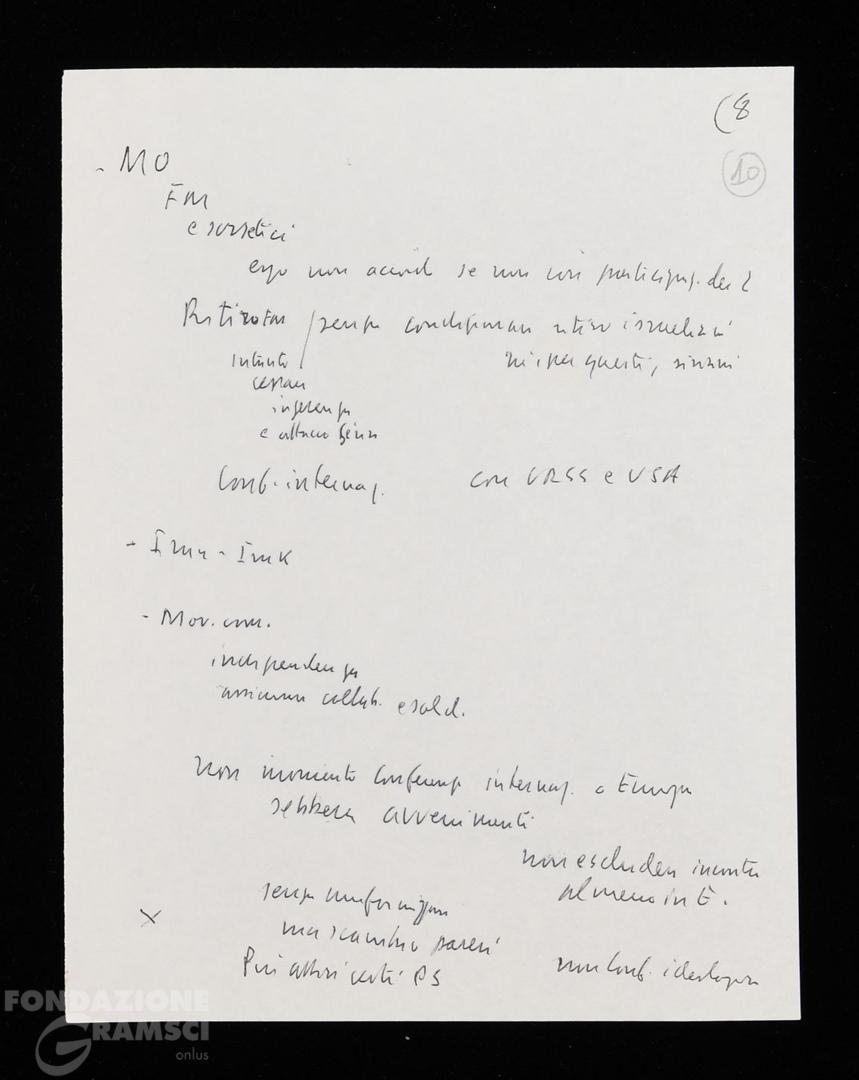 (8
10
- MO
FM
e sovietici
ergo non accord se non con partecipaz. dei 2
Ritiro FM senza condizionare ritiro israeliani
intanto né per questi, siriani
cessare
ingerenza
e attacco
Conf. internaz. con URSS e USA
-
- Mov. com.
indipendenza
assieme collab. e solid.
Non momento Conferenza internaz. o Europa
sebbene avvenimenti
non escludere incontri
almeno in E.
senza uniformizzare
X
ma scambio pareri
Più attori certi PS non Conf. ideologica
FONDAZIONE
GRAMSCI
onlus